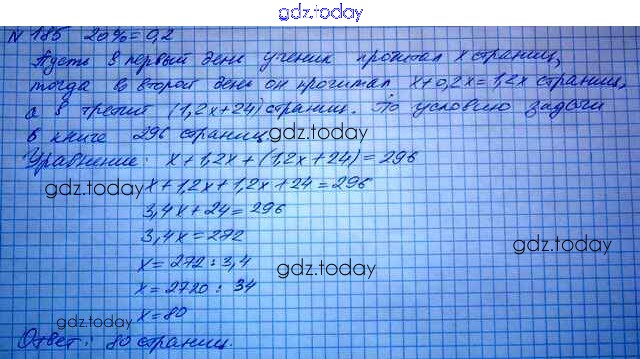 gdz.today
N 185 20% = 0,2
Пусть в первый день ученик прочитал x страниц,
тогда во второй день он прочитал x+0,2x=1,2x страниц,
а в третий (1,2x+24) страниц. По условию задачи
в книге 296 страниц.
gdz.today
Уравнение: x+1,2x+(1,2x+24)=296
gdz.today
x+1,2x+1,2x+24=296
3,4x+24=296
3,4x=272
gdz.today
x=272:3,4
gdz.today
x=2720:34
x=80
gdz.today
Ответ: 80 страниц.